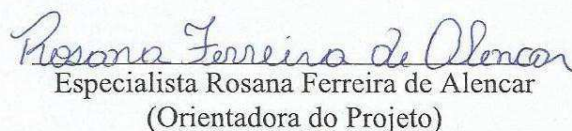 Rosana Ferreira de Alencar
Especialista Rosana Ferreira de Alencar
(Orientadora do Projeto)